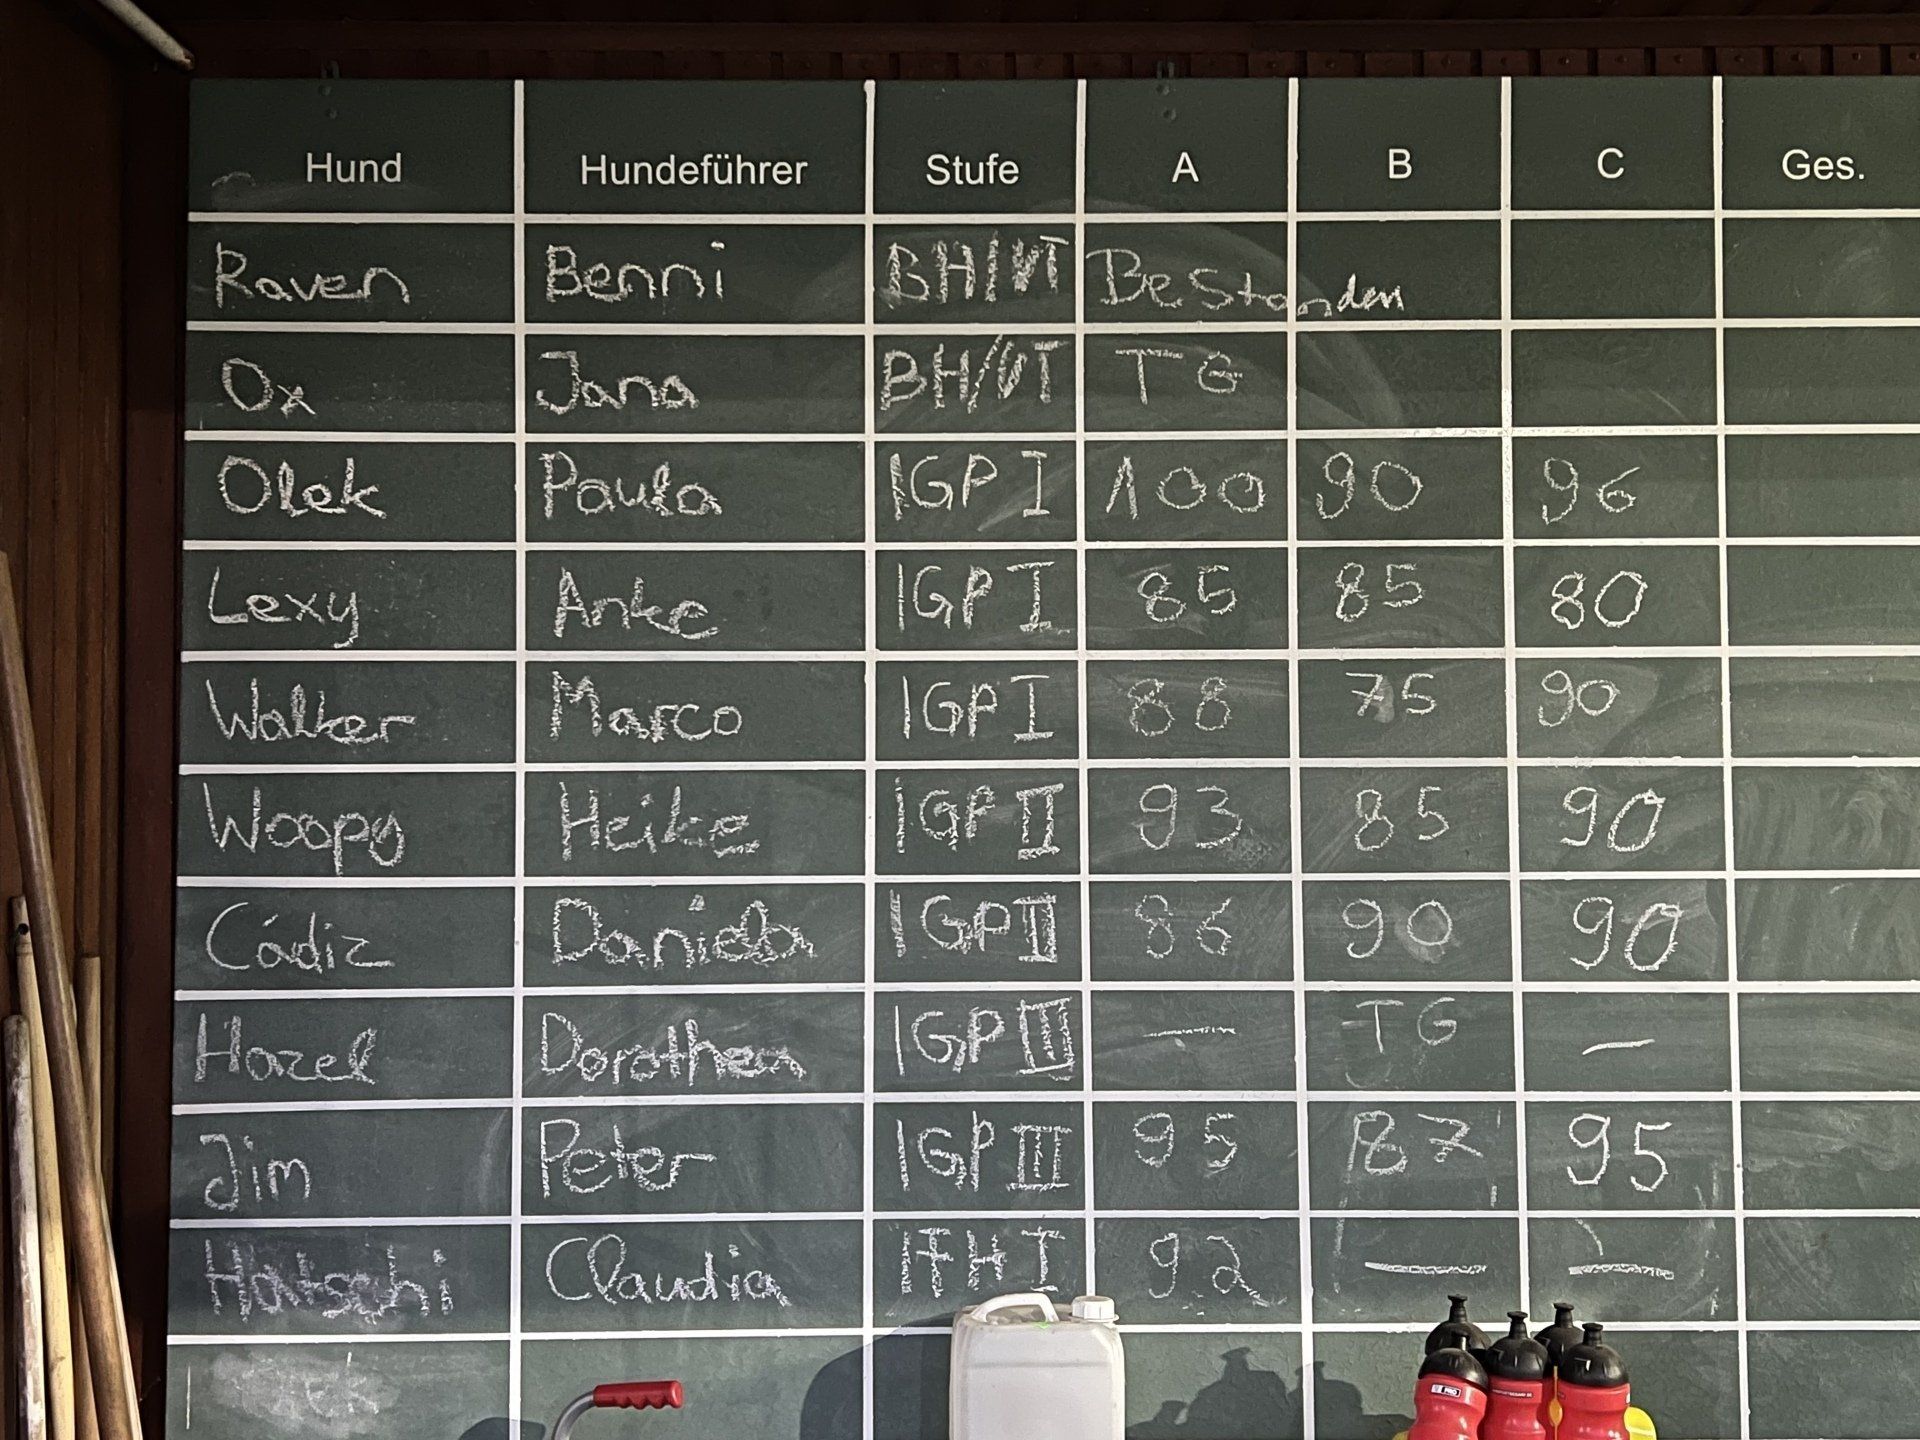 Hund Hundeführer Stufe A B C Ges.
Raven Benni BH/VT Bestanden
Ox Jana BH/VT TG
Olek Paula IGP I 100 90 96
Lexy Anke IGP I 85 85 80
Walker Marco IGP I 88 75 90
Woopy Heike IGP II 93 85 90
Cádiz Daniela IGP II 86 90 90
Hazel Dorothea IGP III — TG —
Jim Peter IGP III 95 87 95
Hatschi Claudia IFH I 92 — —
PRO